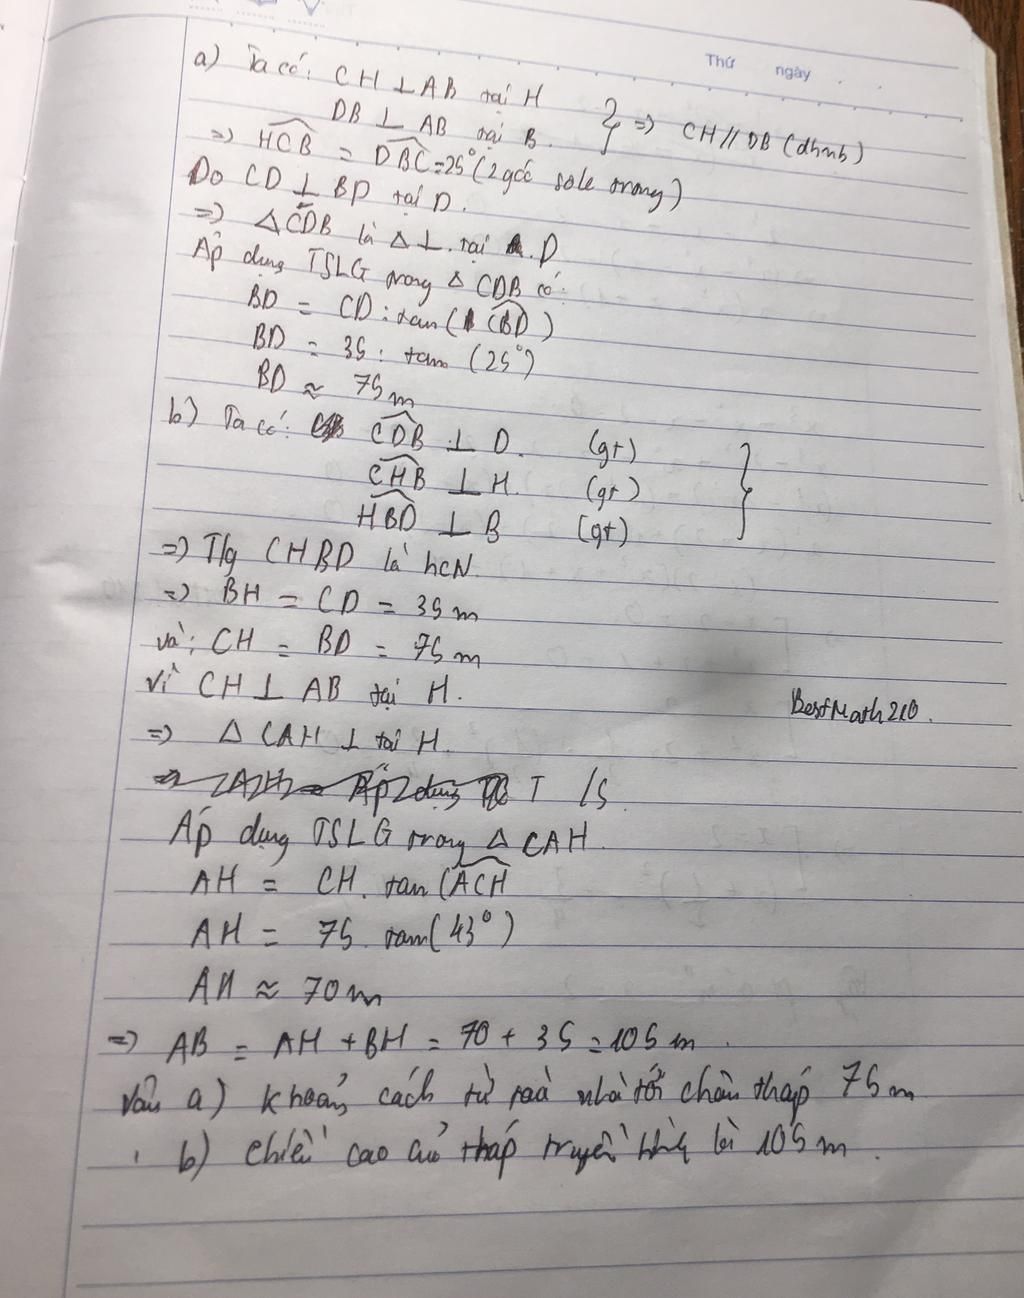 Thứ ngày
a) Ta có: CH ⊥ AB tại H
DB ⊥ AB tại B. } => CH // DB (dhnb)
=> HCB = DBC = 25° (2 góc sole trong)
Do CD ⊥ BD tại D.
=> △ CDB là △ ⊥. tại D
Áp dụng TSLG trong △ CDB có:
BD = CD : tan( CBD )
BD = 35 : tan (25°)
BD ≈ 75 m
b) Ta có: CDB ⊥ D. (gt)
CHB ⊥ H. (gt)
HBD ⊥ B (gt)
=> T/g CHBD là hcN
=> BH = CD = 35 m
và; CH = BD = 75 m
vì CH ⊥ AB tại H.
BestMath210.
=> △ CAH ⊥ tại H.
T /S
Áp dụng TSLG trong △ CAH.
AH = CH. tan(ACH
AH = 75 . tan( 43° )
AH ≈ 70 m
=> AB = AH + BH = 70 + 35 = 105 m .
Vậy a) khoảng cách từ toà nhà tới chân tháp 75 m
b) chiều cao của tháp truyền hình là 105 m .